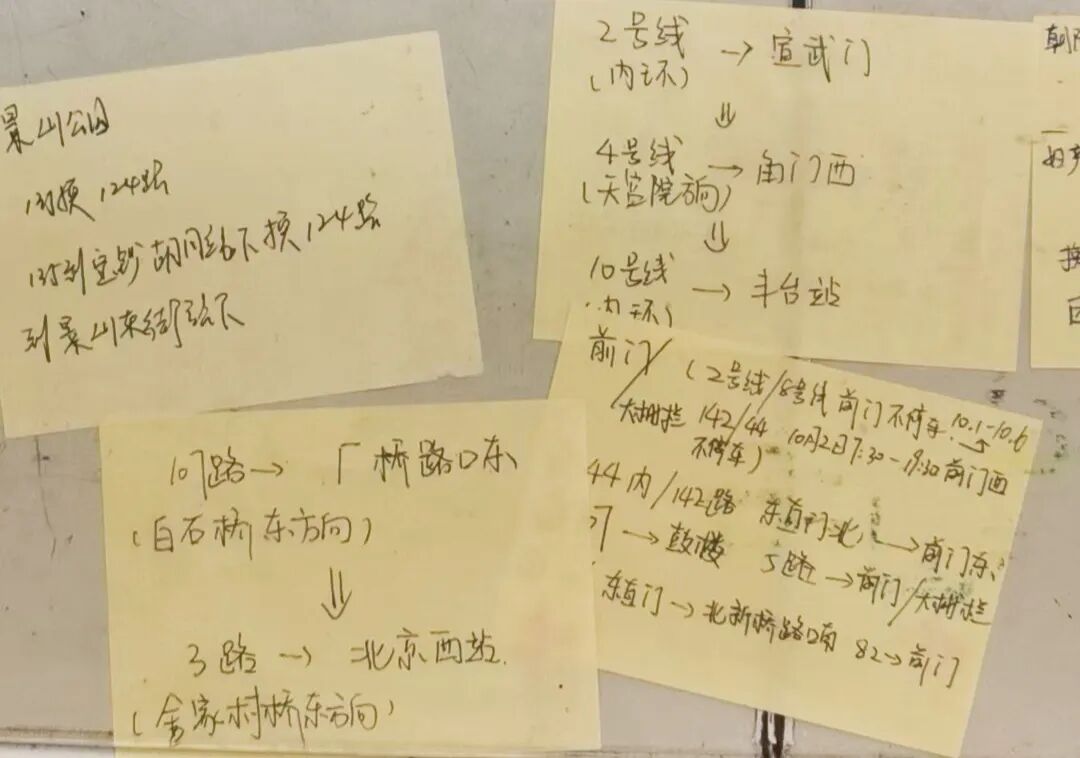 景山公园
107换124路
135到宝钞胡同站下换124路
到景山东街站下
2号线 → 宣武门
(内环)
⇓
4号线 → 角门西
(天宫院方向)
⇓
10号线 → 丰台站
(内环)
107路 → 厂桥路口东
(白石桥东方向)
⇓
3路 → 北京西站
(舍家村桥东方向)
前门/大栅栏
(2号线/8号线 前门不停车 10.1-10.6
142/44不停车) 10月2日7:30-19:30 前门西
44内/142路 东直门北 → 前门东
→ 鼓楼 5路 → 前门/大栅栏
东直门 → 北新桥路口南 82 → 前门
朝
换